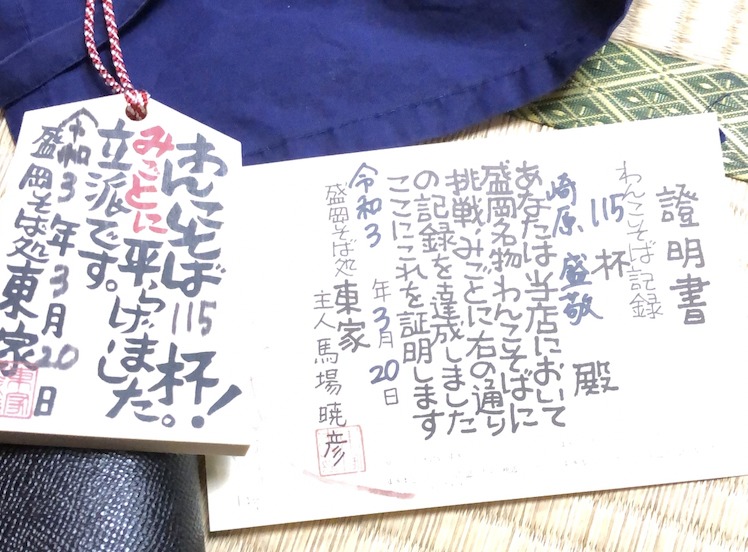 わんこそば115杯!
みごとに平らげました。
立派です。
令和3年3月20日
盛岡そば処東家
東家
證明書
わんこそば記録
115杯
崎原盛敬殿
あなたは当店において
盛岡名物わんこそばに
挑戦、みごとに右の通り
の記録を達成しました
ここにこれを証明します
令和3年3月20日
盛岡そば処東家
主人馬場暁彦